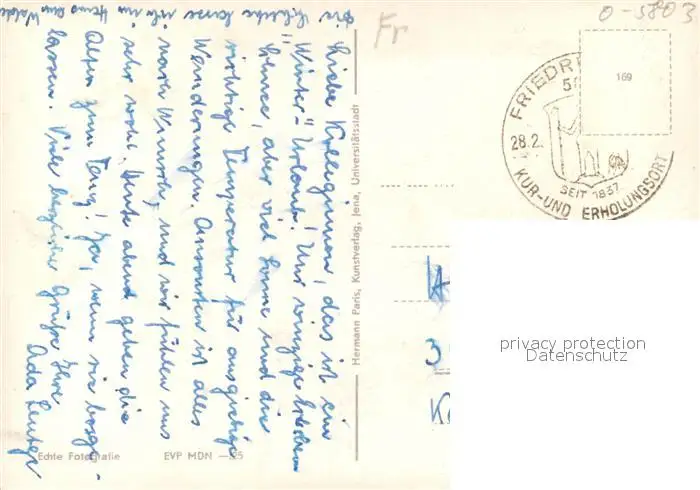 Liebe Kolleginnen, das ist ein
"Winter"-Urlaub! Nur winzige
Schnee, aber viel Sonne und die
richtige Temperatur für ausgiebige
Wanderungen. Ansonsten ist alles
nach Wunsch, und wir fühlen uns
sehr wohl. Heute abend gehen die
Alten zum Tanz! Ja, wenn sie
lassen. Viele herzliche Grüße Ihre
Ada
Die
Echte Fotografie EVP MDN —.25
Hermann Paris, Kunstverlag, Jena, Universitätsstadt
Fr
0-5803
169
FRIEDRI
28.2.
SEIT 1837
KUR-UND ERHOLUNGSORT
privacy protection
Datenschutz